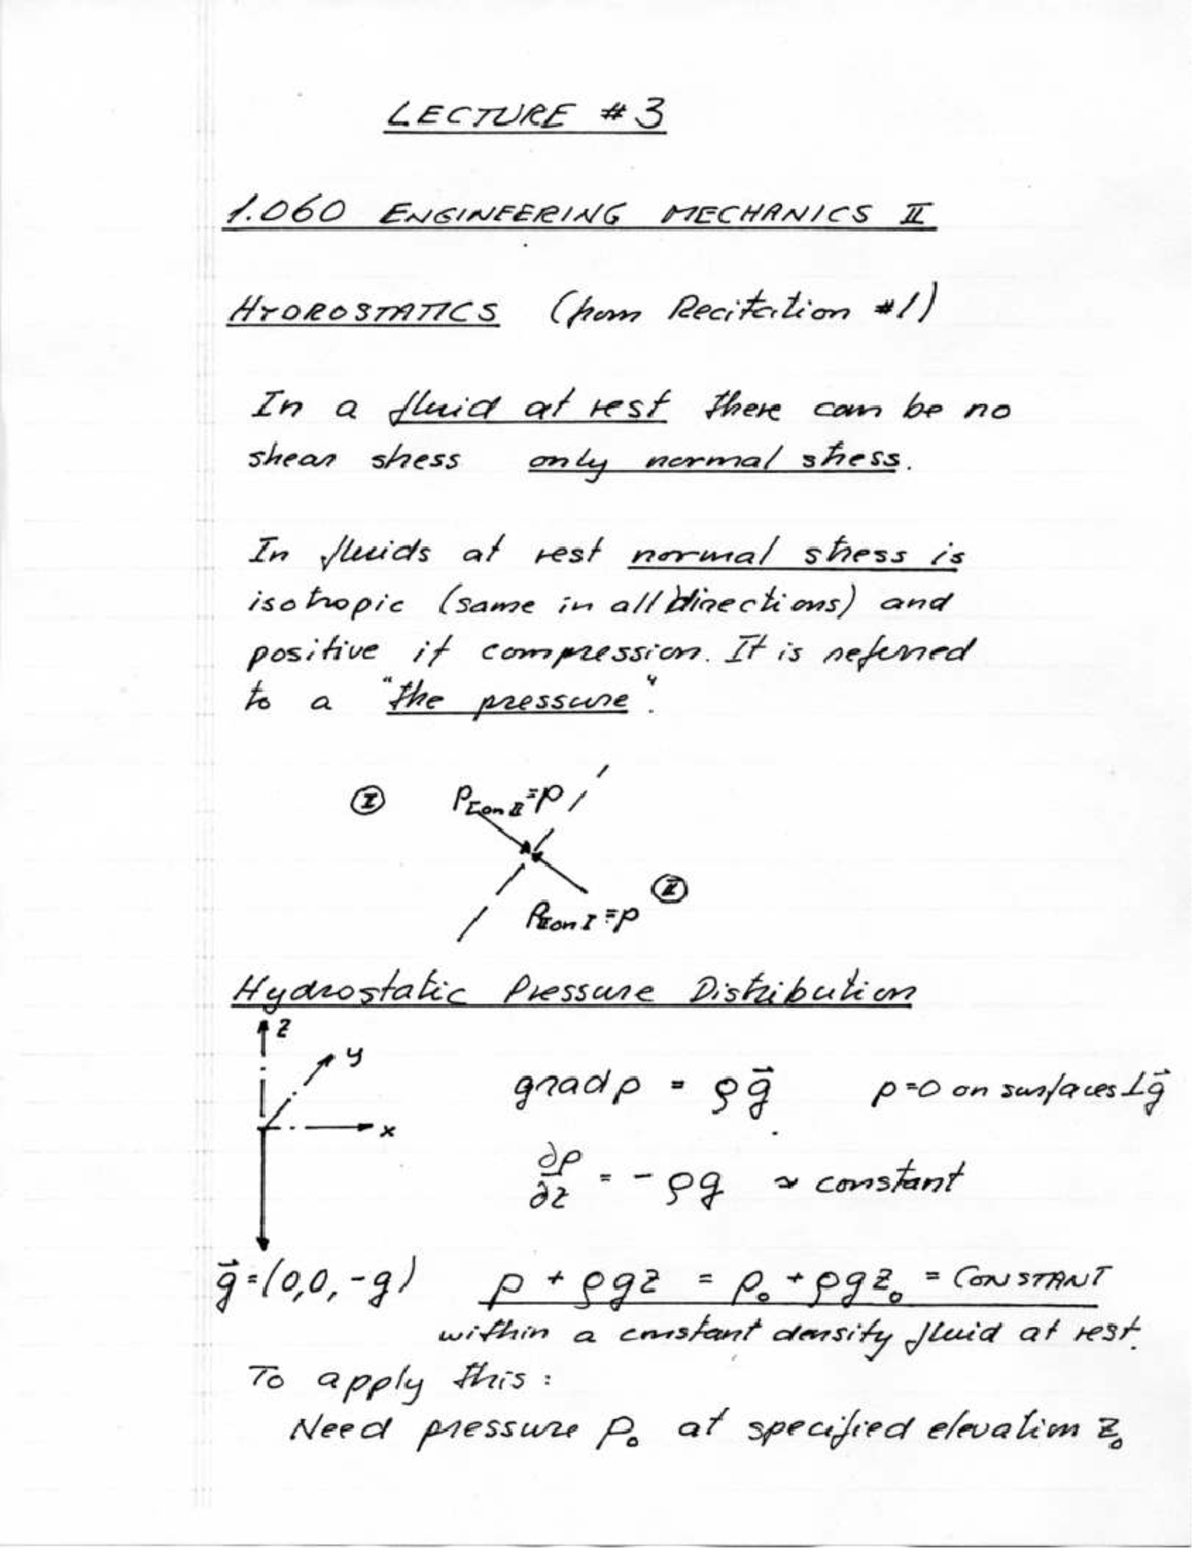 LECTURE #3
1.060 ENGINEERING MECHANICS II
HYDROSTATICS (from Recitation #1)
In a fluid at rest there can be no
shear stress only normal stress.
In fluids at rest normal stress is
isotropic (same in all directions) and
positive if compression. It is referred
to a "the pressure".
I P_{I on II} = p
II
P_{II on I} = p
Hydrostatic Pressure Distribution
z
y
grad p = ρg⃗ p=0 on surfaces ⊥g⃗
x
∂p/∂z = -ρg ≈ constant
g⃗ = (0,0,-g) p + ρgz = p₀ + ρgz₀ = CONSTANT
within a constant density fluid at rest.
To apply this:
Need pressure p₀ at specified elevation z₀